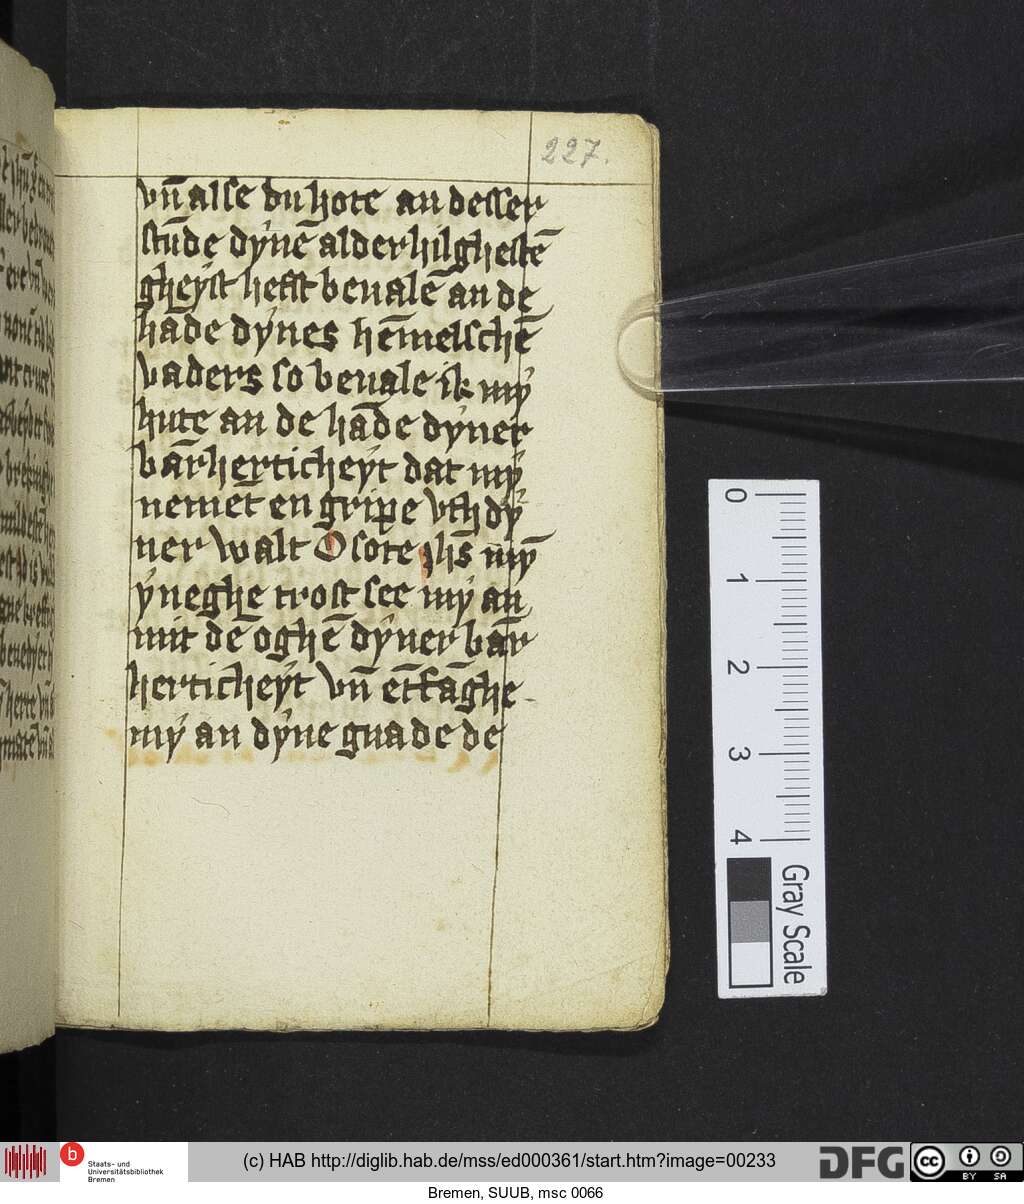 227.
vn̄ alse du hote an desser
stūde dynē alderhilghestē
gheyst hefst beualē an de
hāde dynes hēmelschē
vaders so beuale ik my
hute an de hāde dyner
bārherticheyt dat my
nemēt en gripe vth dy
ner walt O sote ihs̄ my̅
yneghe trost see my an
mit dē oghē dyner bār
herticheyt vn̄ ētfāghe
my an dyne gnade de
0
1
2
3
4
Gray Scale
b Staats- und
Universitätsbibliothek
Bremen
(c) HAB http://diglib.hab.de/mss/ed000361/start.htm?image=00233
DFG
cc BY SA
Bremen, SUUB, msc 0066